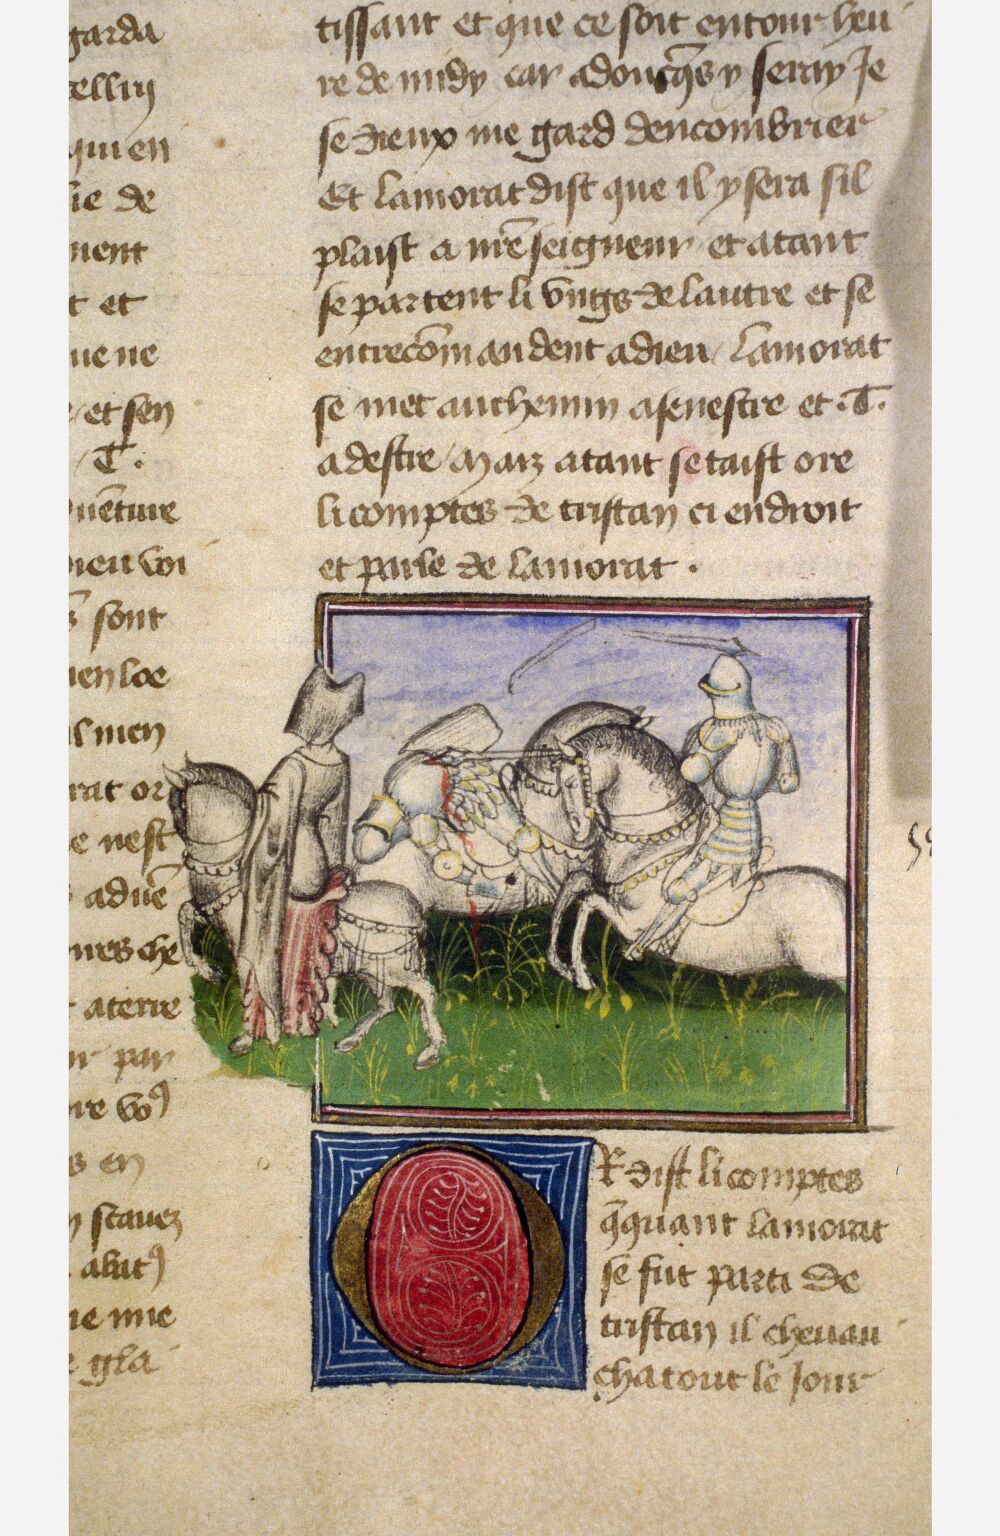 garda
tellin
qui en
lie de
ment
t et
ue ne
et sen
.T.
uenture
dieu voi
sont
ien loe
l men
rat or
e nest
aduē
ures che
aterre
par
re voꝰ
s en
scauez
abatꝰ
ie mie
gla
tissant et que ce soit entour heu
re de midy car adonq̄s y seray Je
se dieux me gard dencombrier
Et lamorat dist que il y sera sil
plaist a nr̄e seigneur et atant
se partent li vngs de lautre et se
entrecōmandent adieu / lamorat
se met au chemin a senestre et .T.
a destre / Maiz atant se taist ore
li comptes de tristan ci endroit
et parle de lamorat .
OR dist li comptes
q̄ quant lamorat
se fut parti de
tristan il cheuau
cha tout le Jour